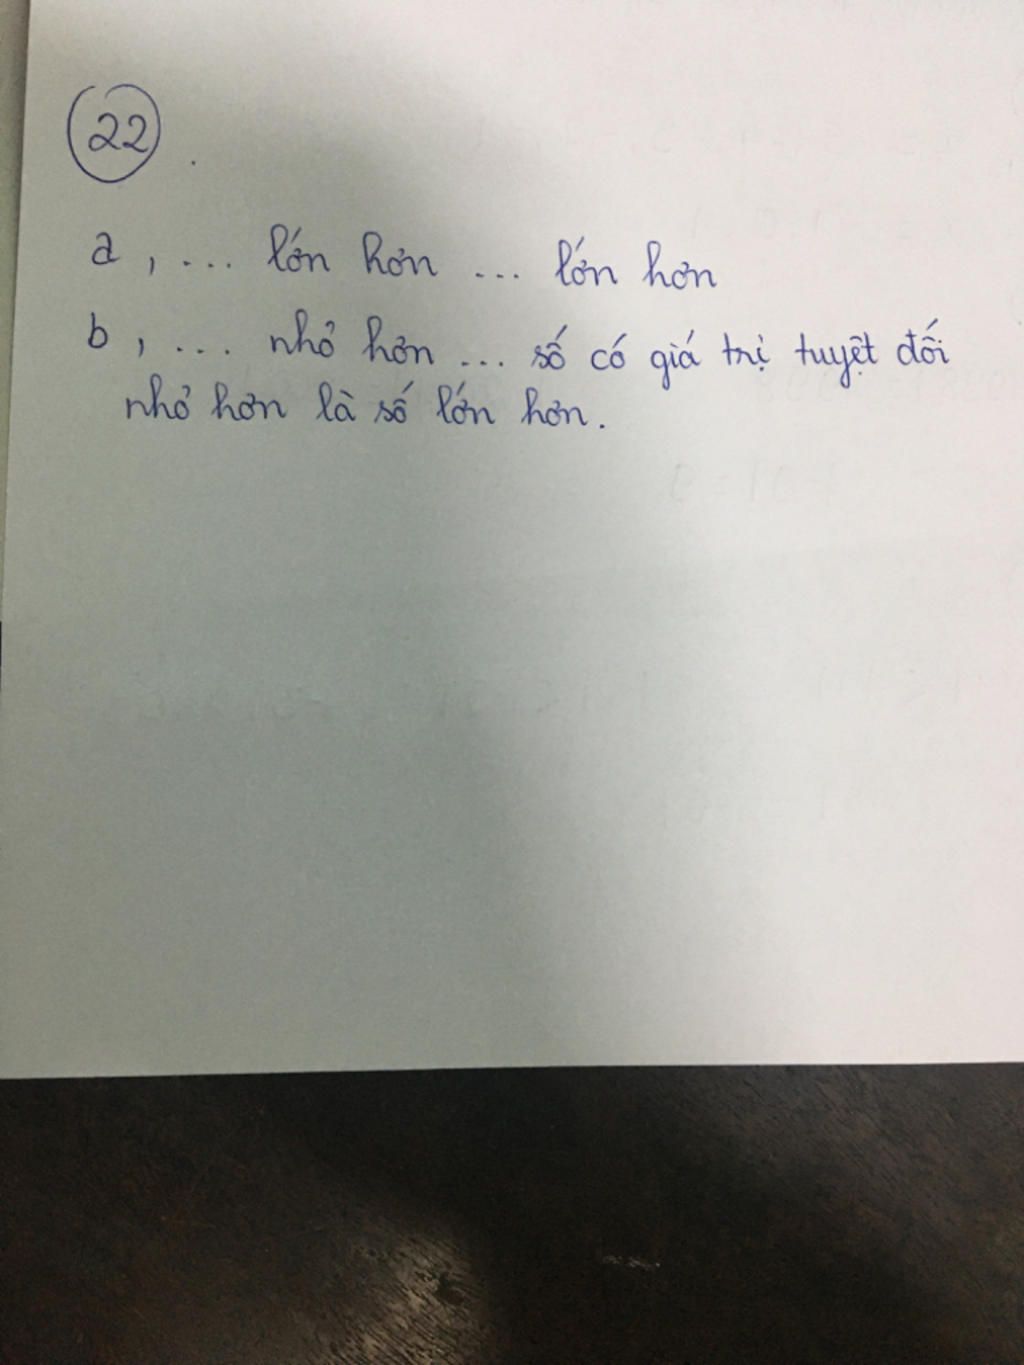 22
a, ... lớn hơn ... lớn hơn
b, ... nhỏ hơn ... số có giá trị tuyệt đối
nhỏ hơn là số lớn hơn.